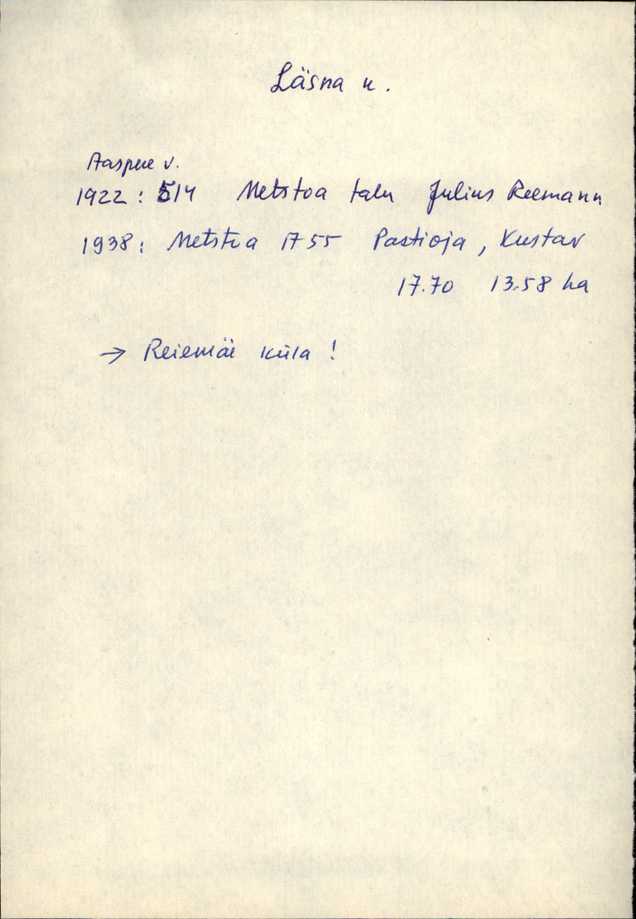 Läsna k.
Aaspere v.
1922: 514 Metstoa talu Julius Reemann
1938: Metstoa 1755 Pastioja, Kustav
17.70 13.58 ha
→ Reiemäe küla!